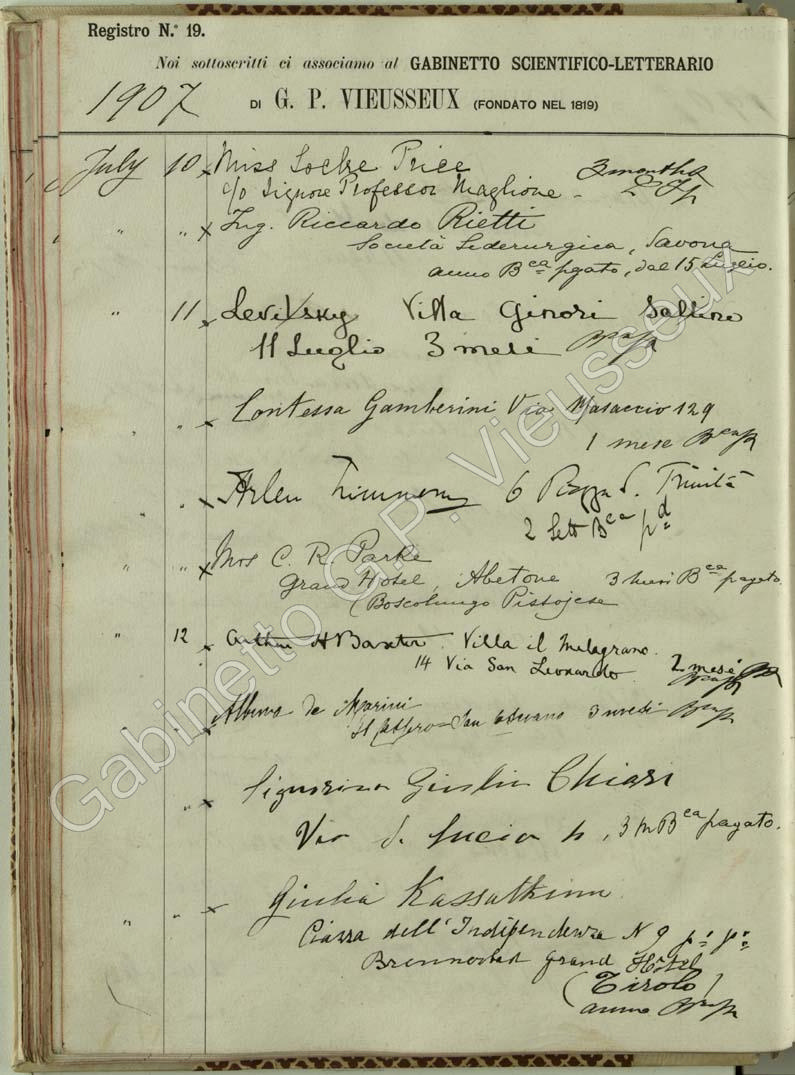 Registro N.º 19.
Noi sottoscritti ci associamo al GABINETTO SCIENTIFICO-LETTERARIO
1907 DI G. P. VIEUSSEUX (FONDATO NEL 1819)
July 10 x Miss Locke Price 3 months
c/o Signore Professor Maglione -
" " x Ing. Riccardo Rietti
Società Siderurgica, Savona
anno Bca pgato, dal 15 Luglio.
" 11 x Levitsky Villa Ginori Saltino
11 Luglio 3 mesi
" x Contessa Gamberini Via Masaccio 129
1 mese
" x Arlen 6 Piazza S. Trinità
2 Sett Bca pd
" " x Mrs C. R. Parke
Grand Hotel, Abetone 3 Bca pagato.
(Boscolungo Pistojese
" 12 x Arthur H Baxter. Villa il Melagrano.
14 Via San Leonardo. 2 mesi
" x de Marini
3 mesi
" x Signorina Giulia Chiari
Via S. Lucia, 3 m Bca pagato.
" " x Giulia Kassatkine
Piazza dell'Indipendenza N 9 p: p:
Grand Hôtel
(Tirolo)
anno
Gabinetto G.P. Vieusseux